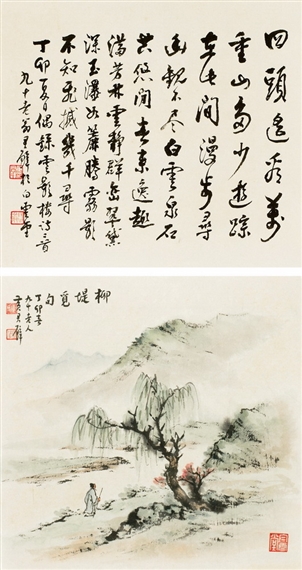 回頭遙看萬
重山多少遊踪
在此間漫步尋
幽觀不盡白雲泉石
共悠閒春來逸趣
滿芳林雲靜群岳翠黛
深玉瀑如簾騰霧影
不知飛撼幾千尋
丁卯夏日偶錄雲影樓詩二首
九十老翁君璧於白雲堂
柳堤覓句
丁卯春
九十老人
黃君璧